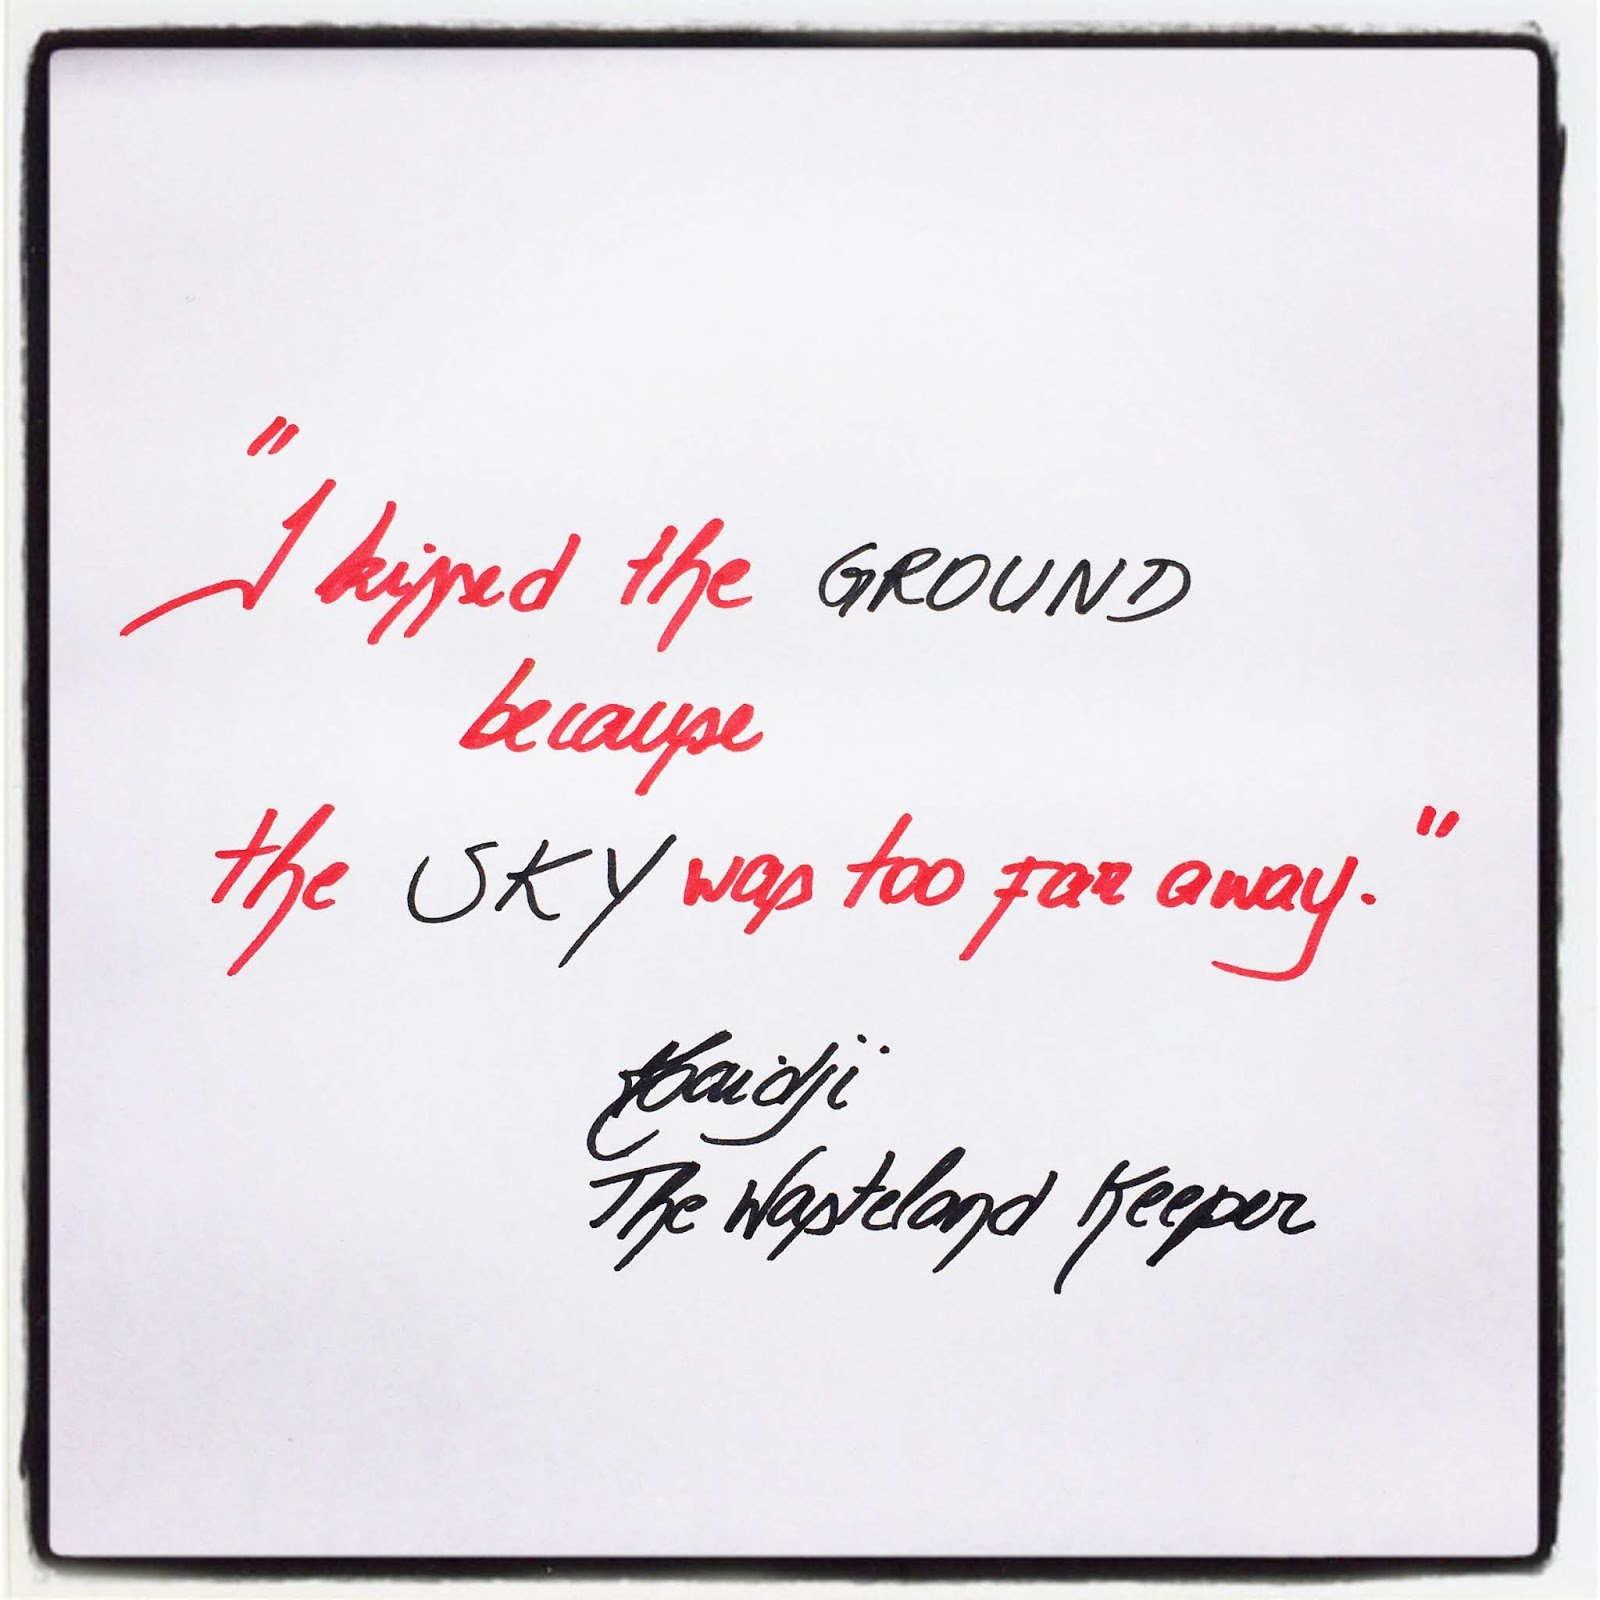 "I kissed the GROUND
because
the SKY was too far away."
Kaidji
The Wasteland Keeper